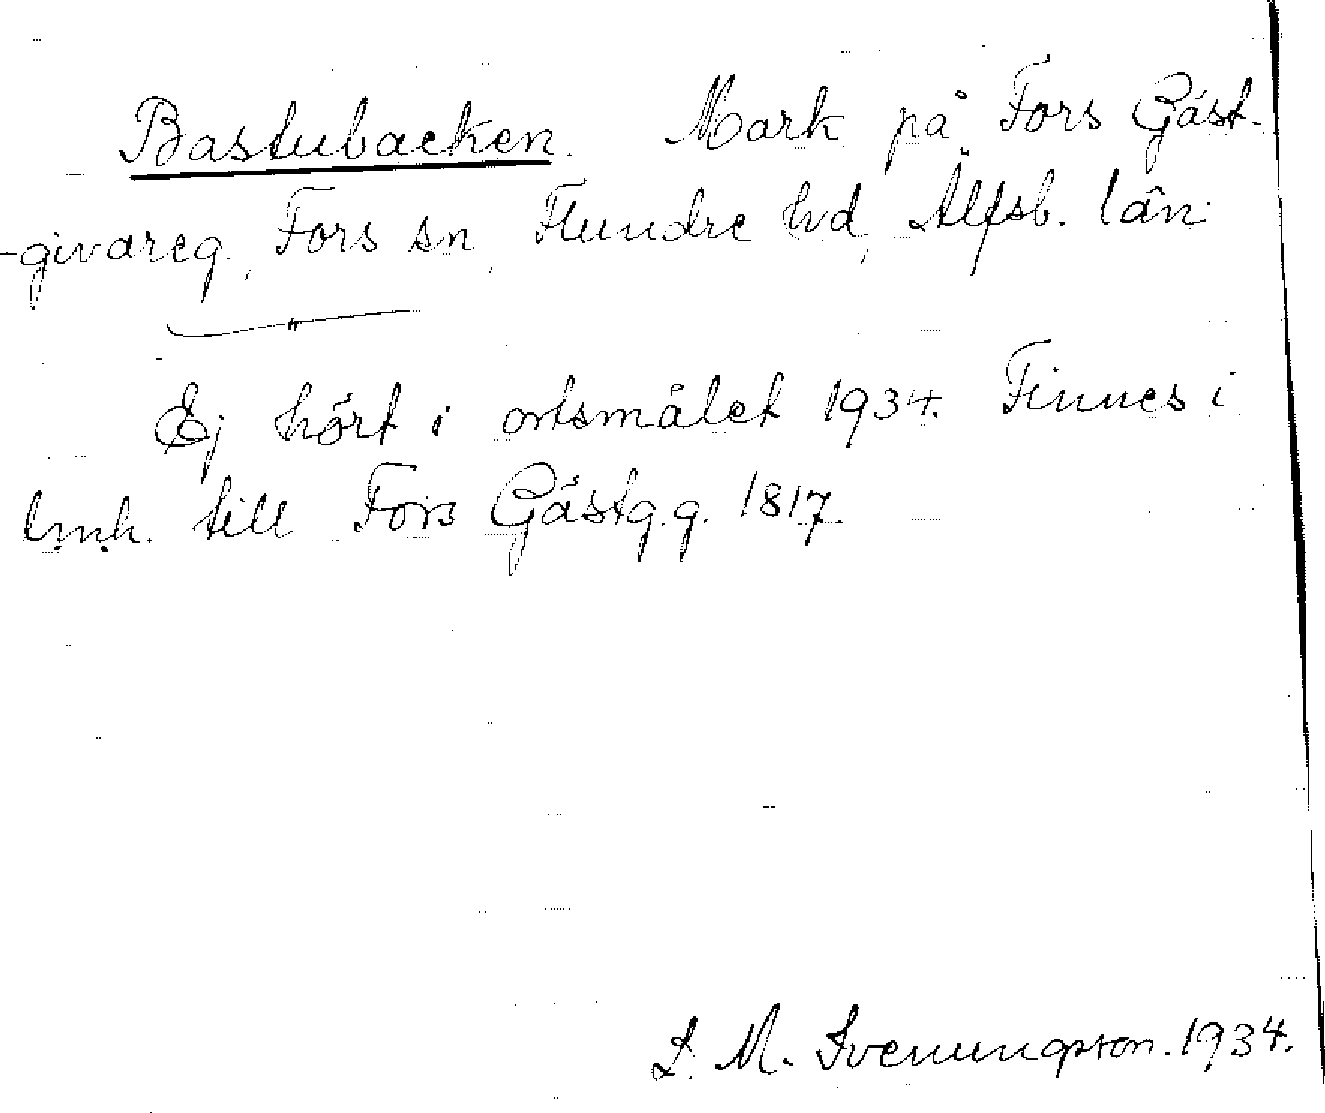 Bastubacken. Mark på Fors Gäst-
-givareg., Fors sn, Flundre hd, Älfsb. län.
Ej hört i ortsmålet 1934. Finnes i
lmh. till Fors Gästg.g. 1817.
S. M. Svenungsson. 1934.